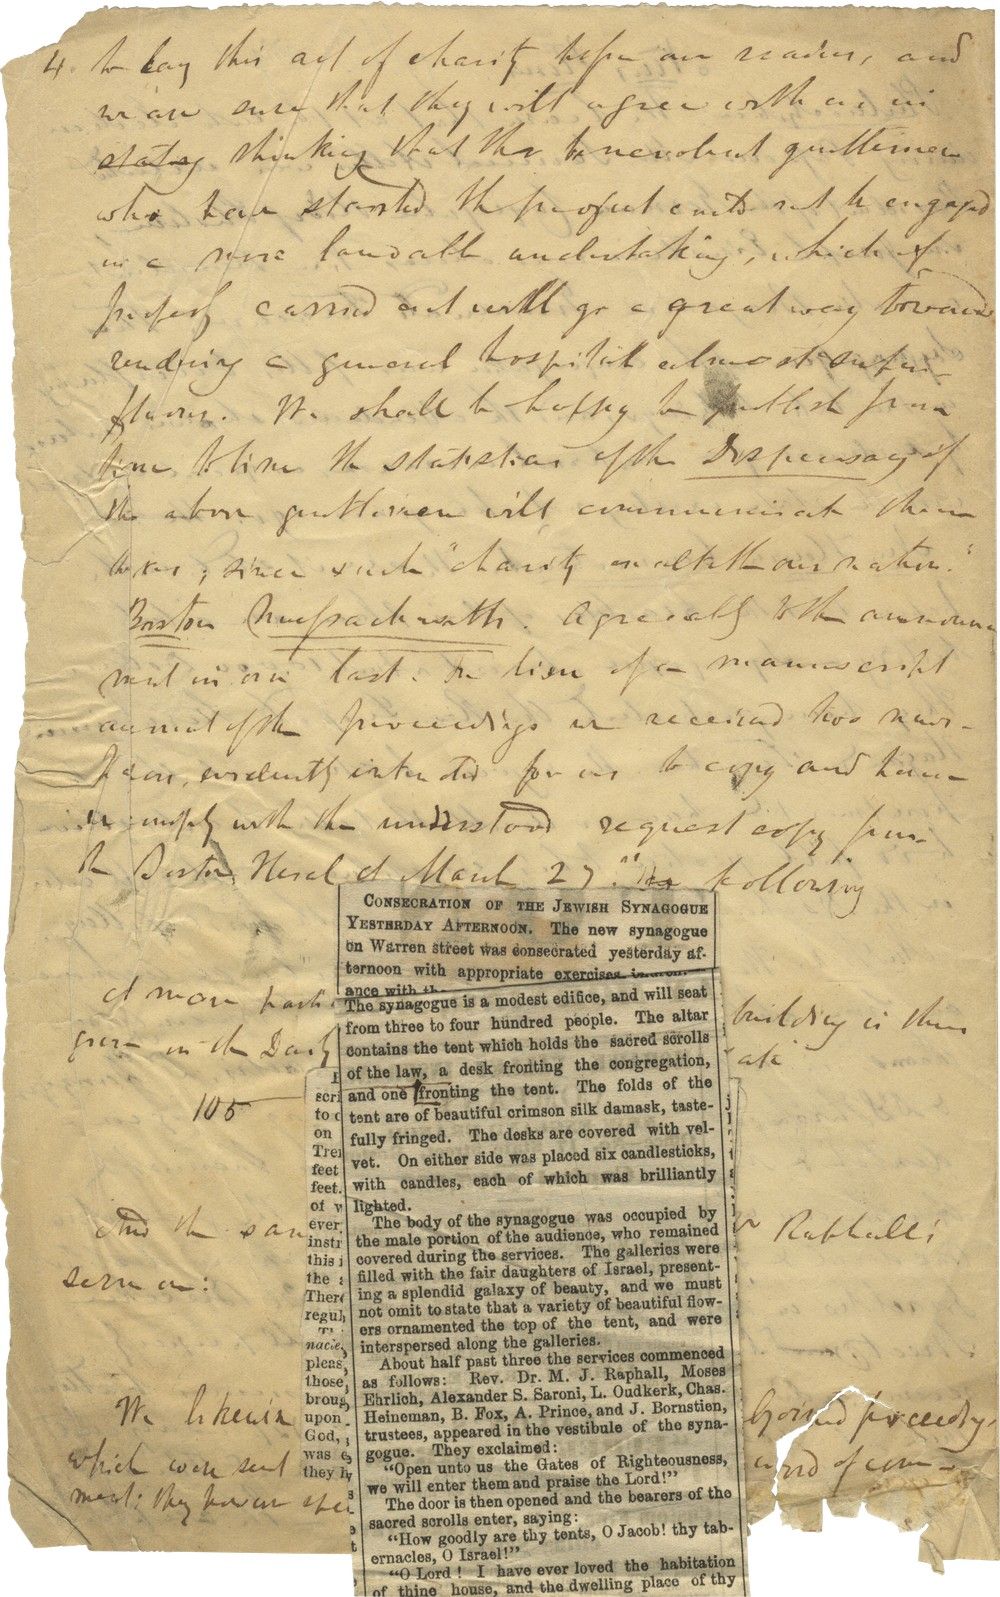 4. to lay this act of charity before our readers, and
we are sure that they will agree with us in
stating thinking that the benevolent gentlemen
who have started the project could not be engaged
in a more laudable undertaking, which if
properly carried out will go a great way towards
rendering a general hospital almost super-
fluous. We shall be happy to publish from
time to time the statistics of the Dispensary if
the above gentlemen will communicate them
to us, since such "charity exalteth our nation."
Boston Massachusetts. Agreeably to the announce
ment in our last. In lieu of a manuscript
account of the proceedings we received two news-
papers, evidently intended for us to copy and hence
we comply with the understood request copy from
the Boston Herald of March 27. the following
CONSECRATION OF THE JEWISH SYNAGOGUE
YESTERDAY AFTERNOON. The new synagogue
on Warren street was consecrated yesterday af-
ternoon with appropriate exercises
ance with
The synagogue is a modest edifice, and will seat
from three to four hundred people. The altar
contains the tent which holds the sacred scrolls
of the law, a desk fronting the congregation,
and one fronting the tent. The folds of the
tent are of beautiful crimson silk damask, taste-
fully fringed. The desks are covered with vel-
vet. On either side was placed six candlesticks,
with candles, each of which was brilliantly
lighted.
The body of the synagogue was occupied by
the male portion of the audience, who remained
covered during the services. The galleries were
filled with the fair daughters of Israel, present-
ing a splendid galaxy of beauty, and we must
not omit to state that a variety of beautiful flow-
ers ornamented the top of the tent, and were
interspersed along the galleries.
About half past three the services commenced
as follows: Rev. Dr. M. J. Raphall, Moses
Ehrlich, Alexander S. Saroni, L. Oudkerk, Chas.
Heineman, B. Fox, A. Prince, and J. Bornstien,
trustees, appeared in the vestibule of the syna-
gogue. They exclaimed:
"Open unto us the Gates of Righteousness,
we will enter them and praise the Lord!"
The door is then opened and the bearers of the
sacred scrolls enter, saying:
"How goodly are thy tents, O Jacob! thy tab-
ernacles, O Israel!"
"O Lord! I have ever loved the habitation
of thine house, and the dwelling place of thy
A more building is thus
given in the Daily
105
scri
to
on
Tre
feet
feet.
of
ever
instr
this
the
There
regul
nacle
pleas
those
broug
upon
God,
was
they
And the Raphall's
sermon:
We likewise
which were sent word of com-
ment: they have